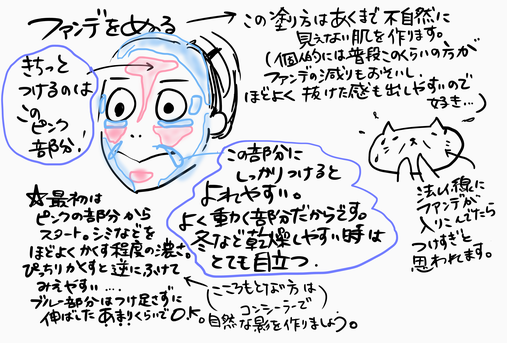 ファンデをぬる
この塗り方はあくまで不自然に
見えない肌を作ります。
(個人的には普段このくらいの方が
ファンデの減りもおそいし、
ほどよく抜けた感も出しやすいので
好き…)
きちっと
つけるのは
この
ピンク
部分!
この部分に
しっかりつけると
よれやすい。
よく動く部分だからです。
冬など乾燥しやすい時は
とても目立つ.
法令線に
ファンデが
入りこんでたら
つけすぎと
思われてます。
☆最初は
ピンクの部分から
スタート。シミなどを
ほどよくかくす程度の濃さ。
ぴっちりかくすと逆にふけて
みえやすい….
ブルー部分はつけ足さずに
伸ばしたあまりくらいでOK。
(こころもとない方は
コンシーラーで)
自然な影を作りましょう。